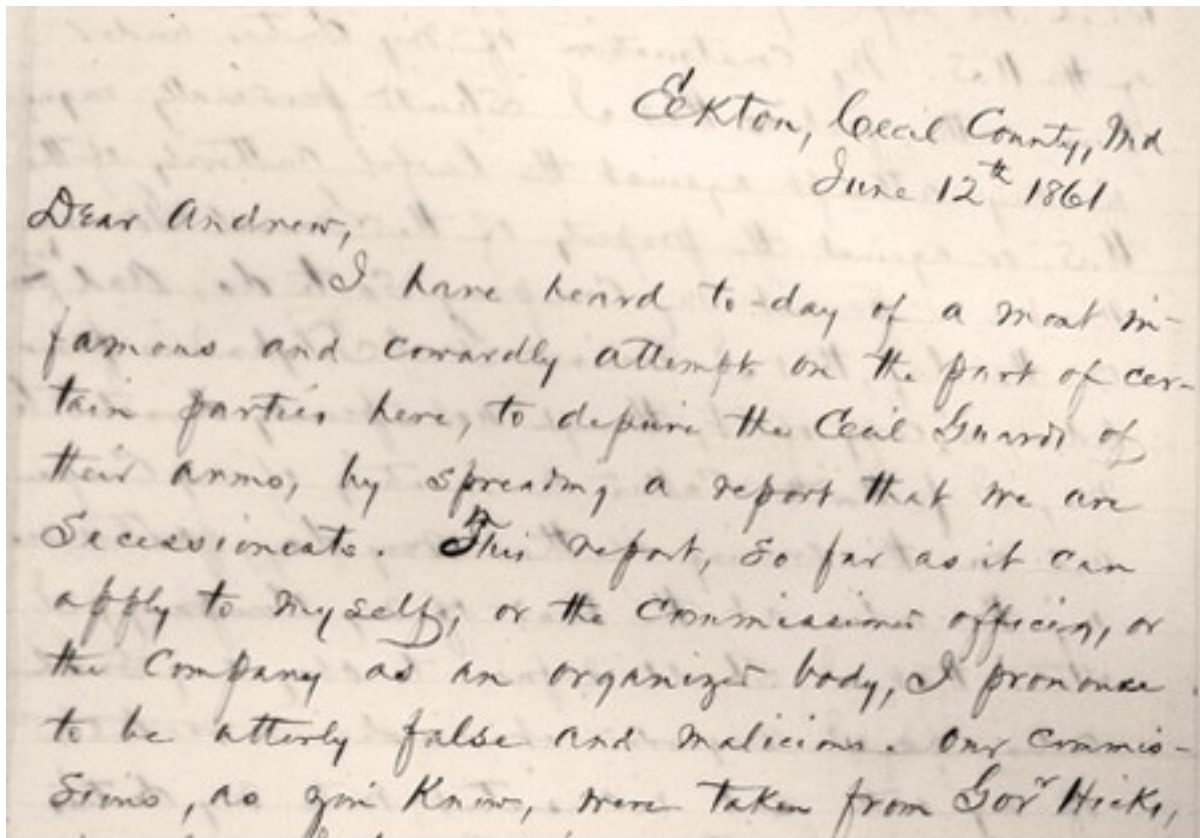 Elkton, Cecil County, Md
June 12th 1861
Dear Andrew,
I have heard to-day of a most in-
famous and cowardly attempt on the part of cer-
tain parties here, to deprive the Cecil Guards of
their arms, by spreading a report that we are
Secessionests. This report, so far as it can
apply to myself, or the Commissioned officers, or
the Company as an organized body, I pronounce
to be utterly false and malicious. Our Commis-
sions, as you Know, were taken from Govr Hicks,